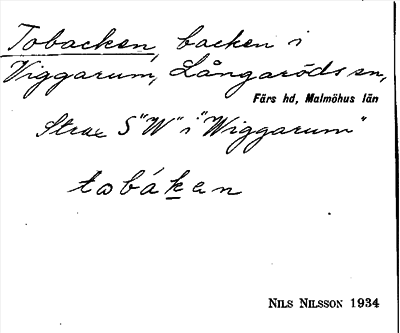 Tobacken, backen i
Viggarum, Långaröds sn,
Färs hd, Malmöhus län
Strax S "W" i "Wiggarum"
tobáken
NILS NILSSON 1934